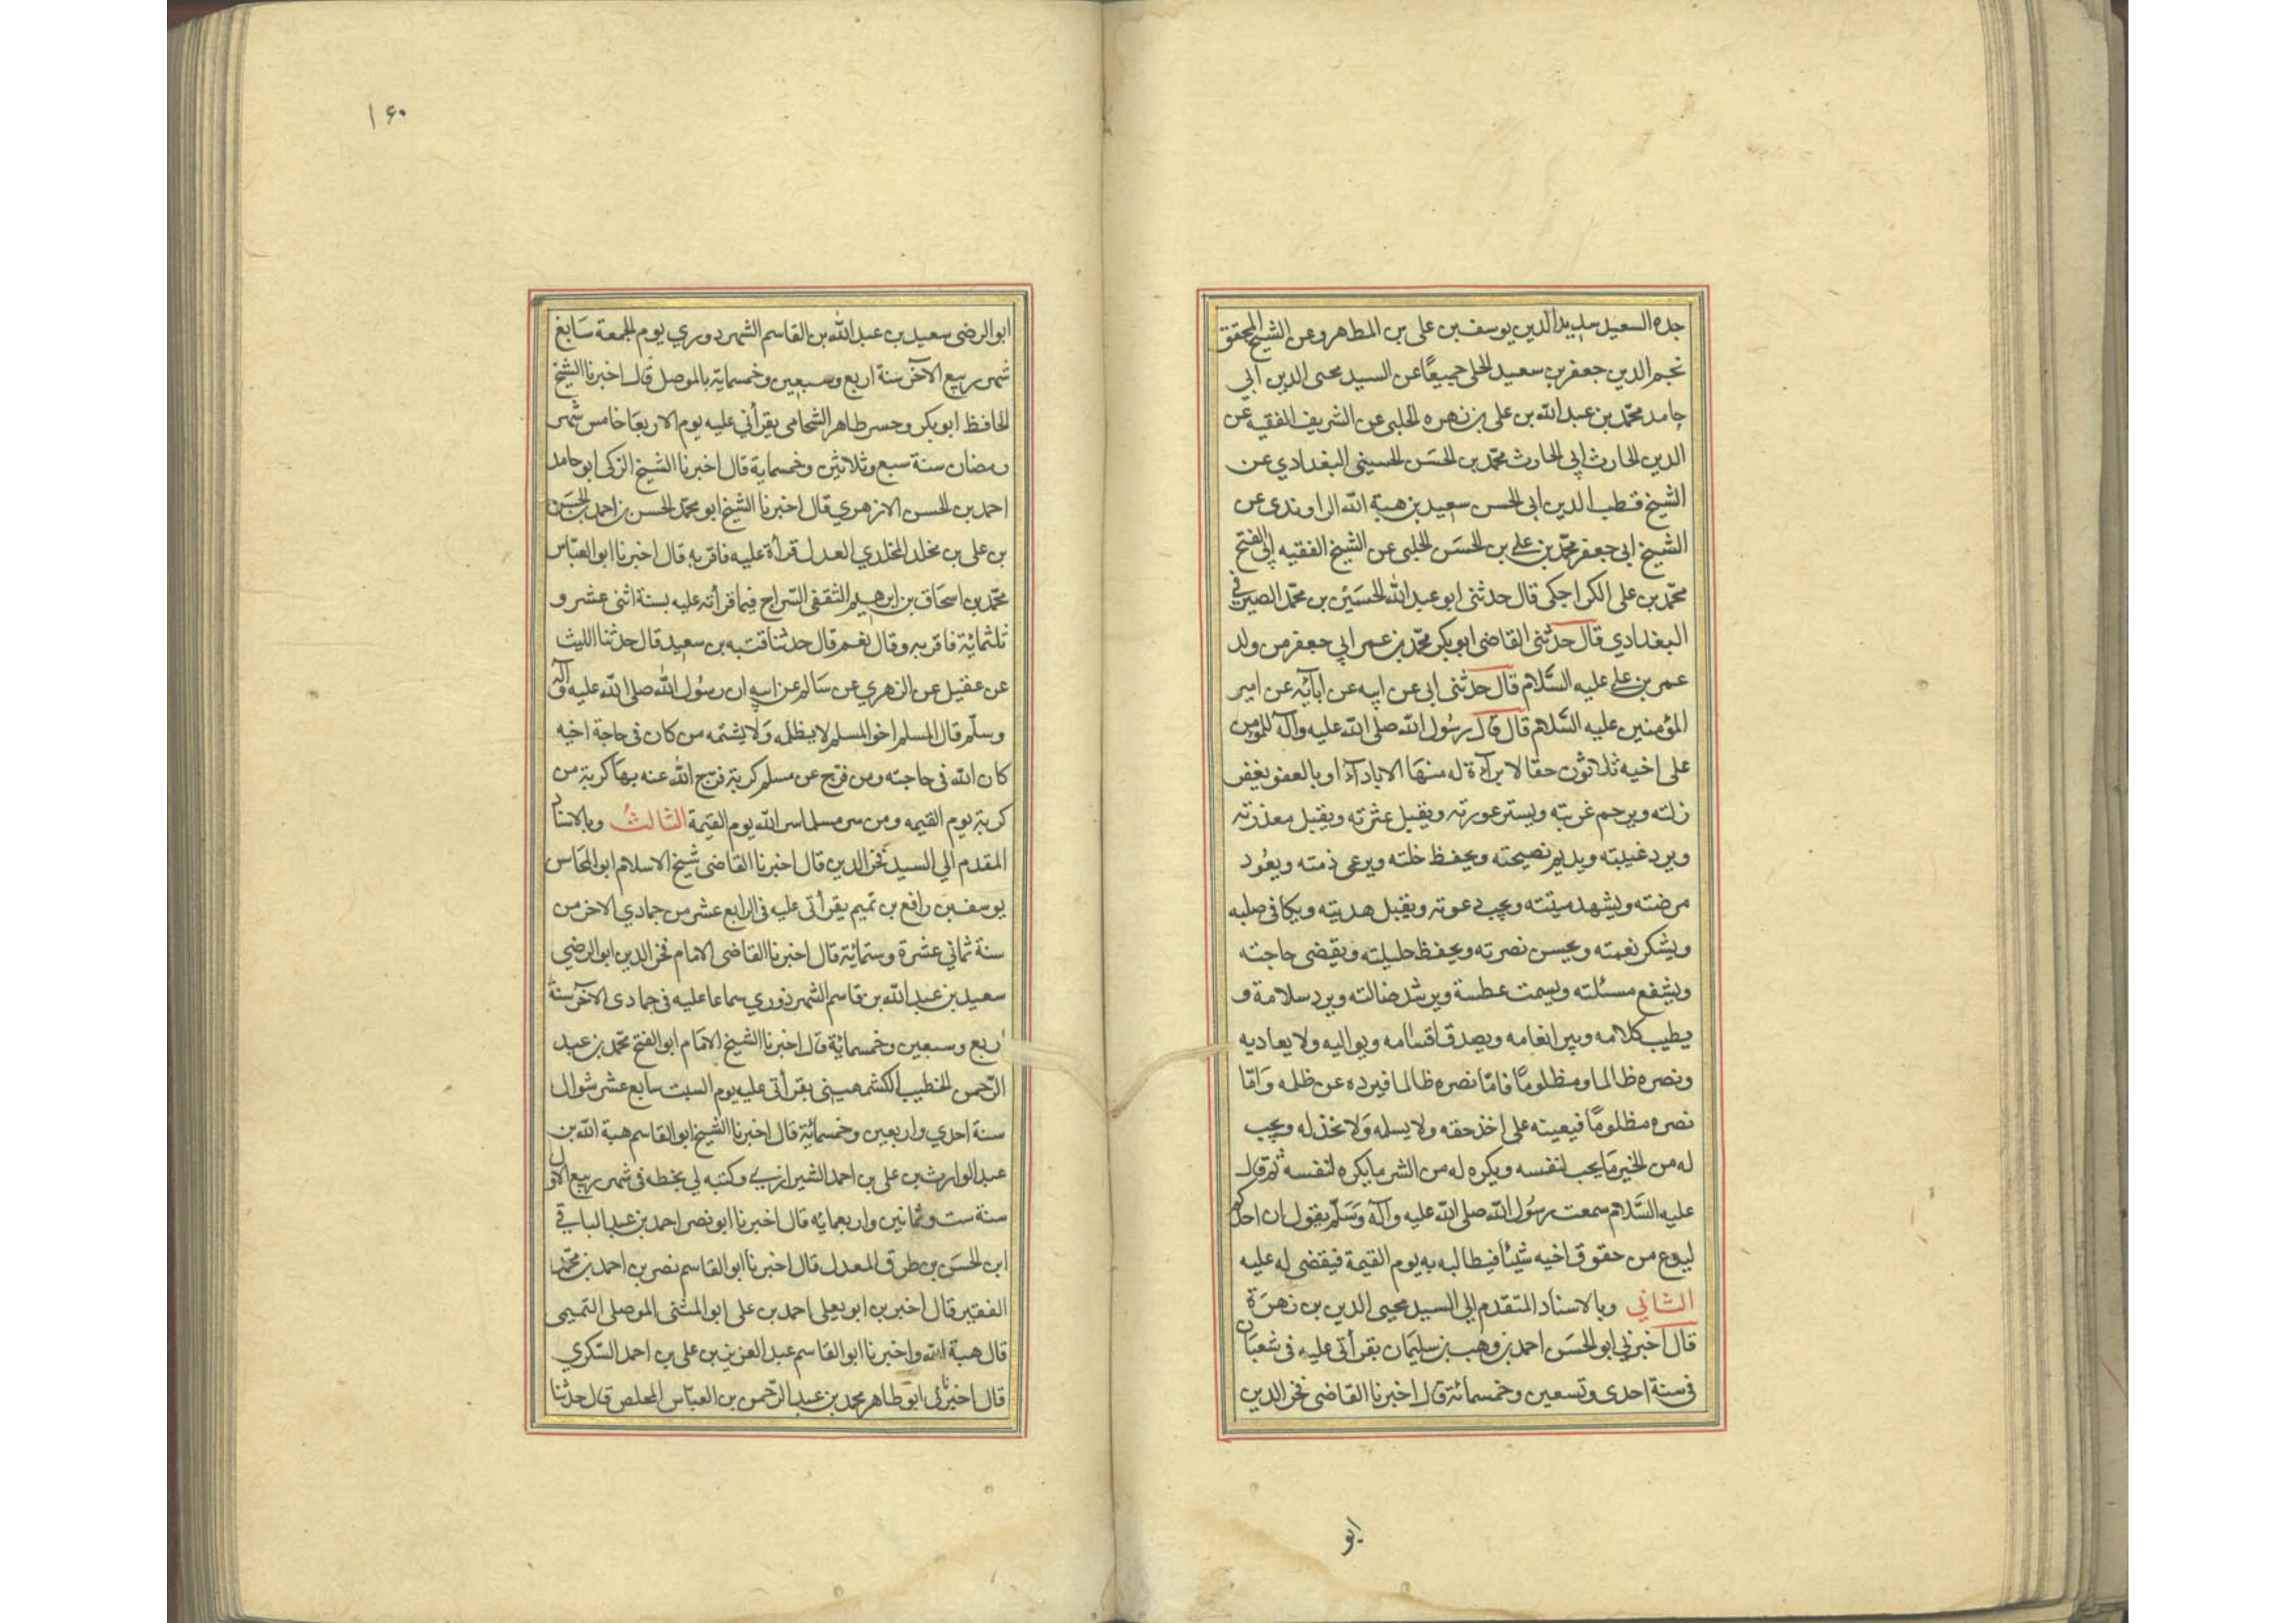 جده السعيد سديد الدين يوسف بن على بن المطهر وعن الشيخ المحقق
نجم الدين جعفر بن سعيد الحلى جميعًا عن السيد محيى الدين ابي
حامد محمّد بن عبد الله بن على بن زهره الحلبى عن الشريف الفقيه عن
الدين الحارث ابى الحارث محمّد بن الحسَن الحسينى البغدادي عن
الشيخ قطب الدين ابى الحسن سعيد بن هبة الله الراوندى عن
الشيخ ابى جعفر محمّد بن على بن الحسَن الحلبى عن الشيخ الفقيه ابى الفتح
محمّد بن على الكراجكى قال حدثنى ابو عبد الله الحسَين بن محمّد الصيرفى
البغدادي قال حدّثنى القاضى ابو بكر محمّد بن عمر ابي جعفر من ولد
عمر بن على عليه السَّلام قال حدثنى ابى عن ابيه عن ابآئه عن امير
المؤمنين عليه السَّلام قال قال رسُول الله صلى الله عليه وآله للمؤمن
على اخيه ثلاثون حقا لا برآءة له منهَا الا باداء او بالعفو يغفر
زلته ويرحم غربته ويستر عورته ويقبل عثرته ويقبل معذرته
ويرد غيبته ويديم نصيحته ويحفظ خلته ويرعى ذمته ويعُود
مرضته ويشهد ميتته ويجب دعوته ويقبل هديته ويكافى صلبه
ويشكر نعمته ويحسن نصرته ويحفظ حليلته ويقضى حاجته
ويشفع مسئلته ويسمت عطسة ويرشد ضالته ويرد سلامة و
يطيب كلامه ويبر انعامه ويصدق اقسَامه ويواليه ولا يعاديه
ونصره ظالما ومظلومًا فامّا نصره ظالما فيرده عن ظلمه وَامّا
نصره مظلومًا فيعينه على اخذ حقه ولا يسله وَلا يخذله ويجب
له من الخير مَا يجب لنفسه ويكره له من الشر ما يكره لنفسه ثم قال
عليه السَّلام سمعت رسُول الله صلى الله عليه وآله وَسَلّم يقول ان احدكم
ليدع من حقوق اخيه شيئا فيطالبه به يوم القيمة فيقضى له عليه
الثاني وبالاسناد المتقدم الى السيد محيى الدين بن زهرَة
قال اخبرنى ابو الحسَن احمد بن وهب بن سليمَان بقرأتى عليه فى شعبَان
فى سنة احدى وتسعين وخمسمائة قال اخبرنا القاضى فخر الدين
ابو
۱۶۰
ابو الرضى سعيد بن عبد الله بن القاسم الشهردوري يوم الجمعة سَابع
شهر ربيع الآخر سنة اربع وسبعين وخمسماية بالموصل قال اخبرنا الشيخ
الحافظ ابو بكر وجسر طاهر الشحامى بقرأتي عليه يوم الاربعَا خامس شهر
رمضان سنة سبع وثلاثين وخمسماية قال اخبرنا الشيخ الزكى ابو حامد
احمد بن الحسن الازهري قال اخبرنا الشيخ ابو محمّد الحسن بن احمد بن الحسَن
بن على بن مخلد المخلدي العدل قراءة عليه فاقر به قال اخبرنا ابو العبّاس
محمّد بن اسحَاق بن ابرهيم الثقفى السّراج فيما قرأته عليه بسنة اثنى عشر و
ثلثمائة فاقر به وقال نعم قال حدثنا قتبه بن سعيد قال حدثنا الليث
عن عقيل عن الزهري عن سَالم عن ابيه ان رسُول الله صلى الله عليه وآله
وسلّم قال المسلم اخو المسلم لا يظلمه وَلا يشتمه من كان فى حاجة اخيه
كان الله فى حاجته ومن فرّج عن مسلم كربة فرّج الله عنه بهَا كربة من
كربة يوم القيمه ومن سر مسلما سر الله يوم القيمة الثالث وبالاسناد
المقدم الي السيد فخر الدين قال اخبرنا القاضى شيخ الاسلام ابو المحَاسن
يوسف بن رافع بن تميم بقرأتى عليه فى الرابع عشر من جمادي الاخر من
سنة ثماني عشرة وستمائة قال اخبرنا القاضى الامام فخر الدين ابو الرضي
سعيد بن عبد الله بن قاسم الشهرذوري سماعا عليه فى جمادى الآخر سنة
اربع وسبعين وخمسمائة قال اخبرنا الشيخ الامَام ابو الفتح محمّد بن عبد
الرّحمن الخطيب الكشمهينى بقرأتى عليه يوم السبت سابع عشر شوال
سنة احدي واربعين وخمسمائة قال اخبرنا الشيخ ابو القاسم هبة الله بن
عبد الوارث بن على بن احمد الشيرازي وكتبه لي بخطه فى شهر ربيع الاول
سنة ست وثمانين واربعمايه قال اخبرنا ابو نصر احمد بن عبد الباقي
ابن الحسَن بن طوق المعدل قال اخبرنا ابو القاسم نصر بن احمد بن محمّد
الفقير قال اخبر بن ابو يعلى احمد بن على ابو المثنى الموصلى التميمى
قال هبة الله واخبرنا ابو القاسم عبد العزيز بن على بن احمد السّكري
قال اخبرنا ابو طاهر محمد بن عبد الرّحمن بن العبّاس المخلص قال حدثنا